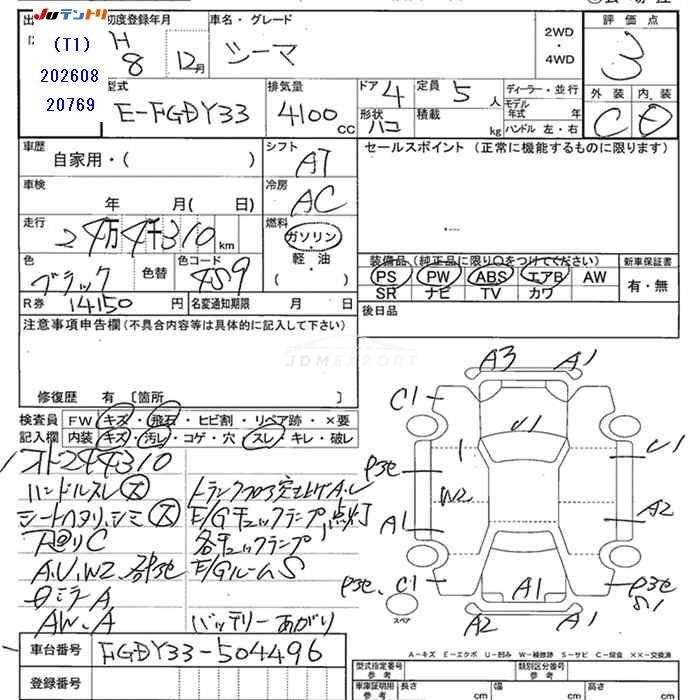 JUテントリ
(T1)
202608
20769
初度登録年月
H 8 12月
車名・グレード
シーマ
2WD
・
4WD
評価点
3
型式
E-FGDY33
排気量
4100 CC
ドア 4
定員 5 人
形状 ハコ
積載 kg
ディーラー・並行
モデル年式 年
ハンドル 左・右
外装 内装
C D
車歴
自家用・( )
シフト
AT
セールスポイント (正常に機能するものに限ります)
車検
年 月( 日)
冷房
AC
走行
24万4千310 km
燃料
ガソリン・
軽・油
( )
色
ブラック
色替
色コード
装備品 (純正品に限り○をつけてください)
PS PW ABS エアB AW
SR ナビ TV カワ
新車保証書
有・無
R券 14150 円
名変通知期限 月 日
後日品
注意事項申告欄 (不具合内容等は具体的に記入して下さい)
JDMEXPORT
修復歴 有 〔箇所 〕
検査員 FW キズ・飛石・ヒビ割・リペア跡・×要
記入欄 内装 キズ・汚レ・コゲ・穴・スレ・キレ・破レ
244310
ハンドルスレ大
シートヘタリ、シミ大
下回りC
A.U.W2.
A
AW.A
E/Gチェックランプ点灯
各チェックランプ
E/GルームS
バッテリーあがり
A3 A1
C1
U1
U1
W2
A1
A2
C1
A1
S1
A2 A1
スペア
A-キズ E-エクボ U-凹み W-補修跡 S-サビ C-腐食 ××-交換済
車台番号 FGDY33-504496
登録番号
型式指定番号 参考
類別区分番号 参考
車庫証明用 参考
長さ cm
幅 cm
高さ cm